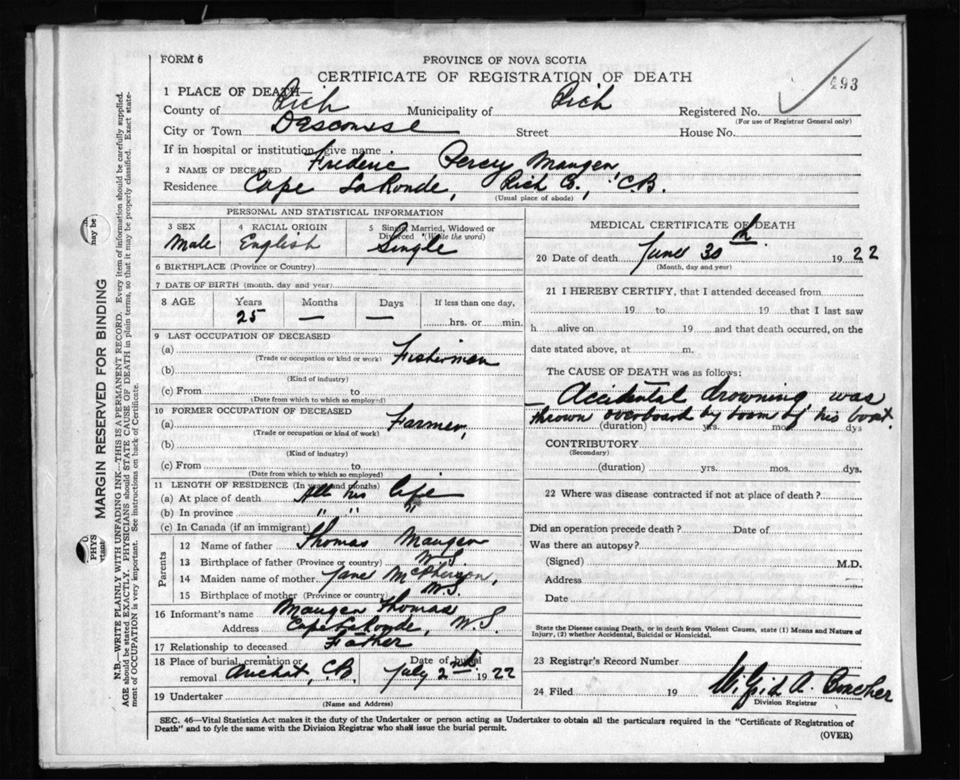 FORM 6
PROVINCE OF NOVA SCOTIA
CERTIFICATE OF REGISTRATION OF DEATH
493
1 PLACE OF DEATH—
County of Rich Municipality of Rich Registered No.
(For use of Registrar General only)
City or Town Descousse Street House No.
If in hospital or institution, give name
2 NAME OF DECEASED Frederic Percy Mauger
Residence Cape LaRonde, Rich Co., C.B.
(Usual place of abode)
PERSONAL AND STATISTICAL INFORMATION
3 SEX 4 RACIAL ORIGIN 5 Single, Married, Widowed or Divorced (Write the word)
Male English Single
6 BIRTHPLACE (Province or Country)
7 DATE OF BIRTH (month, day and year)
8 AGE Years Months Days If less than one day,
25 — — hrs. or min.
9 LAST OCCUPATION OF DECEASED
(a) Fisherman
(Trade or occupation or kind or work)
(b)
(Kind of industry)
(c) From to
(Date from which to which so employed)
10 FORMER OCCUPATION OF DECEASED
(a) Farmer,
(Trade or occupation or kind of work)
(b)
(Kind of industry)
(c) From to
(Date from which to which so employed)
11 LENGTH OF RESIDENCE (In years and months)
(a) At place of death All his life
(b) In province " " "
(c) In Canada (if an immigrant)
Parents
12 Name of father Thomas Mauger
13 Birthplace of father (Province or country) N.S.
14 Maiden name of mother Jane McPherson,
15 Birthplace of mother (Province or country) N.S.
16 Informant's name Mauger Thomas
Address Cape LaRonde, N.S.
17 Relationship to deceased Father
18 Place of burial, cremation or removal Arichat, C.B. Date of burial July 2nd 1922
19 Undertaker
(Name and Address)
MEDICAL CERTIFICATE OF DEATH
20 Date of death June 30th 1922
(Month, day and year)
21 I HEREBY CERTIFY, that I attended deceased from
19 to 19 that I last saw
h alive on 19 and that death occurred, on the
date stated above, at m.
The CAUSE OF DEATH was as follows:
Accidental drowning was
thrown overboard by boom of his boat.
(duration) yrs. mos. dys
CONTRIBUTORY
(Secondary)
(duration) yrs. mos. dys.
22 Where was disease contracted if not at place of death?
Did an operation precede death? Date of
Was there an autopsy?
(Signed) M.D.
Address
Date
State the Disease causing Death, or in death from Violent Causes, state (1) Means and Nature of
Injury, (2) whether Accidental, Suicidal or Homicidal.
23 Registrar's Record Number
24 Filed 19
Division Registrar
SEC. 46—Vital Statistics Act makes it the duty of the Undertaker or person acting as Undertaker to obtain all the particulars required in the "Certificate of Registration of
Death" and to fyle the same with the Division Registrar who shall issue the burial permit.
(OVER)
MARGIN RESERVED FOR BINDING
N.B.—WRITE PLAINLY WITH UNFADING INK—THIS IS A PERMANENT RECORD. Every item of information should be carefully supplied.
AGE should be stated EXACTLY. PHYSICIANS should STATE CAUSE OF DEATH in plain terms, so that it may be properly classified. Exact state-
ment of OCCUPATION is very important. See instructions on back of Certificate.
may be
PHYS